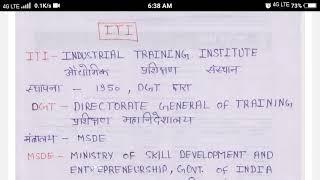 4G LTE 0.1K/s 6:38 AM 4G LTE 83%
ITI
ITI - INDUSTRIAL TRAINING INSTITUTE
औद्योगिक प्रशिक्षण संस्थान
स्थापना - 1950, DGT द्वारा
DGT - DIRECTORATE GENERAL OF TRAINING
प्रशिक्षण महानिदेशालय
मंत्रालय - MSDE
MSDE - MINISTRY OF SKILL DEVELOPMENT AND
ENTREPRENEURSHIP, GOVT. OF INDIA